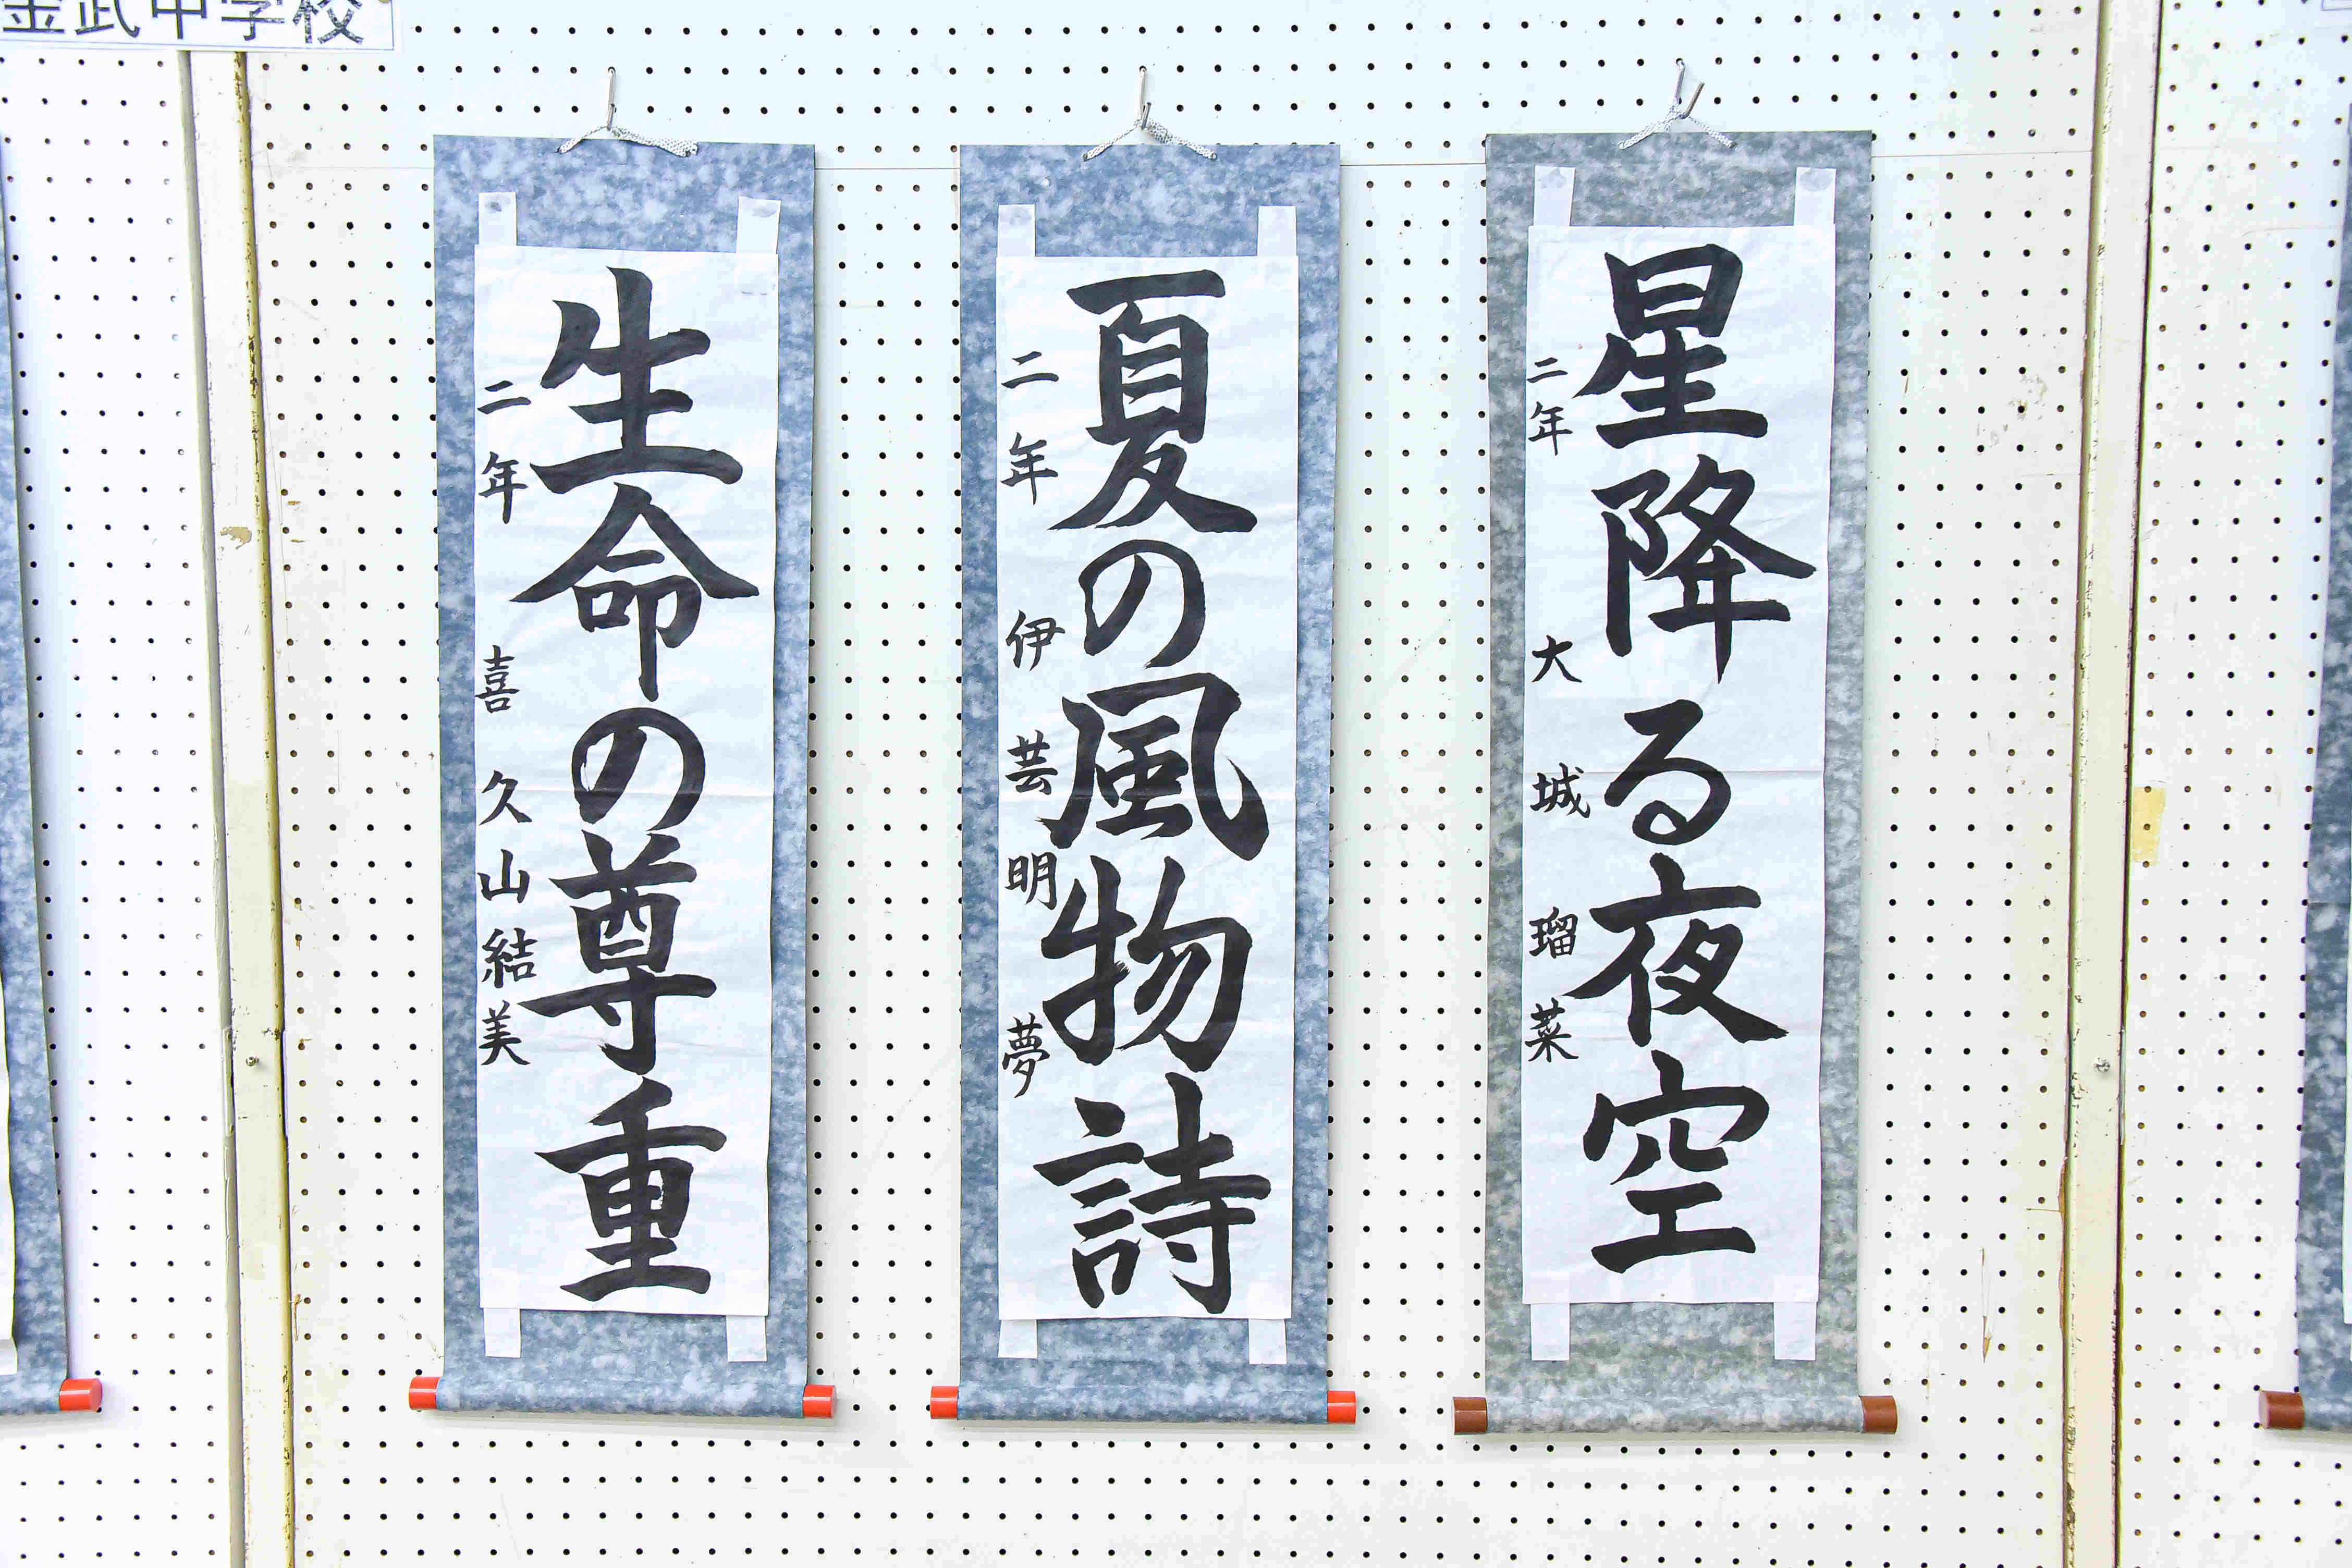 金武中学校
星降る夜空
二年 大城瑠菜
夏の風物詩
二年 伊芸明夢
生命の尊重
二年 喜久山結美